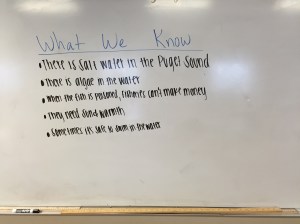 What We Know
• There is salt water in the Puget Sound
• There is algae in the water
• When the fish is poisoned, fisheries can't make money
• They need warmth
• Sometimes it's safe to swim in the water